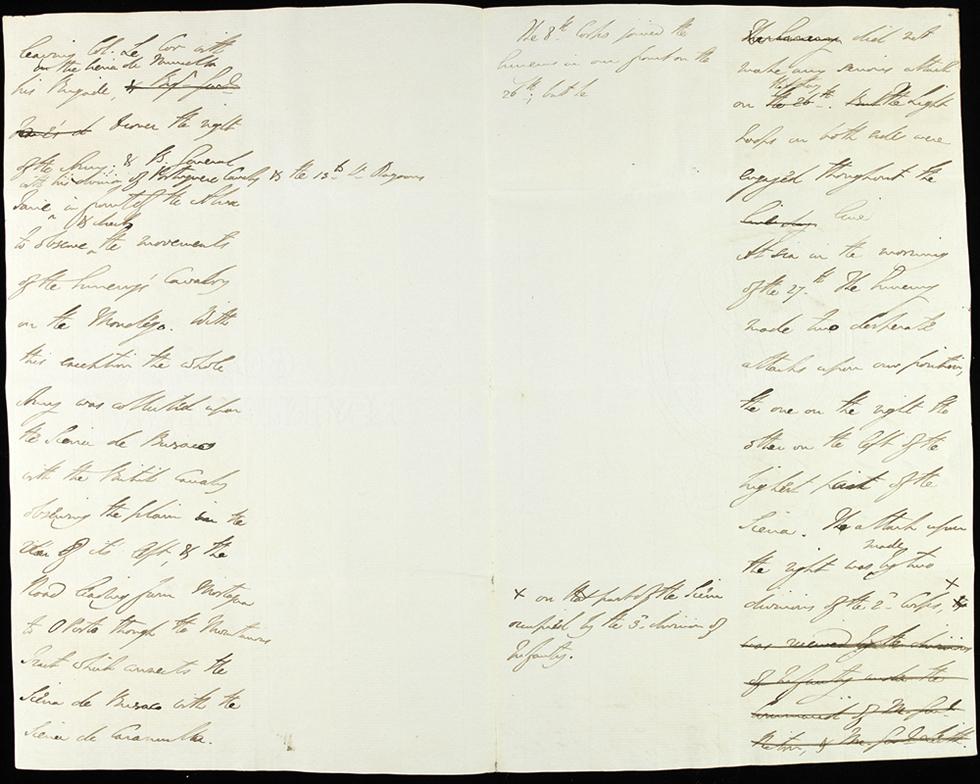 leaving Col. Le Cor with
on the Sierra de Murcella
his Brigade, & Br. Genl.
to cover the right
of the Army; & Br. General
with his division of Portuguese Cavalry & the 13th Lt. Dragoons
Fane in front of the Alva
& check
to observe the movements
of the Enemy's Cavalry
on the Mondego. With
this exception the whole
Army was collected upon
the Sierra de Busaco
with the British Cavalry
observing the plain in the
rear of its left, & the
Road leading from Mortagua
to Oporto through the Mountainous
Tract which connects the
Sierra de Busaco with the
Sierra de Caramulla.
The 8th Corps joined the
Enemy in our front on the
26th; but he
x on that part of the Sierra
occupied by the 3d division of
Infantry.
The Enemy did not
make any serious attack
on the 26th. The Light
troops on both sides were
engaged throughout the
line
At six in the morning
of the 27th. The Enemy
made two desperate
attacks upon our position,
the one on the right the
other on the left of the
highest part of the
Sierra. The attack upon
made
the right was by two
divisions of the 2d Corps, x
was received by the division
of Infantry under the
Command of M. Genl.
Picton, & M. Genl.